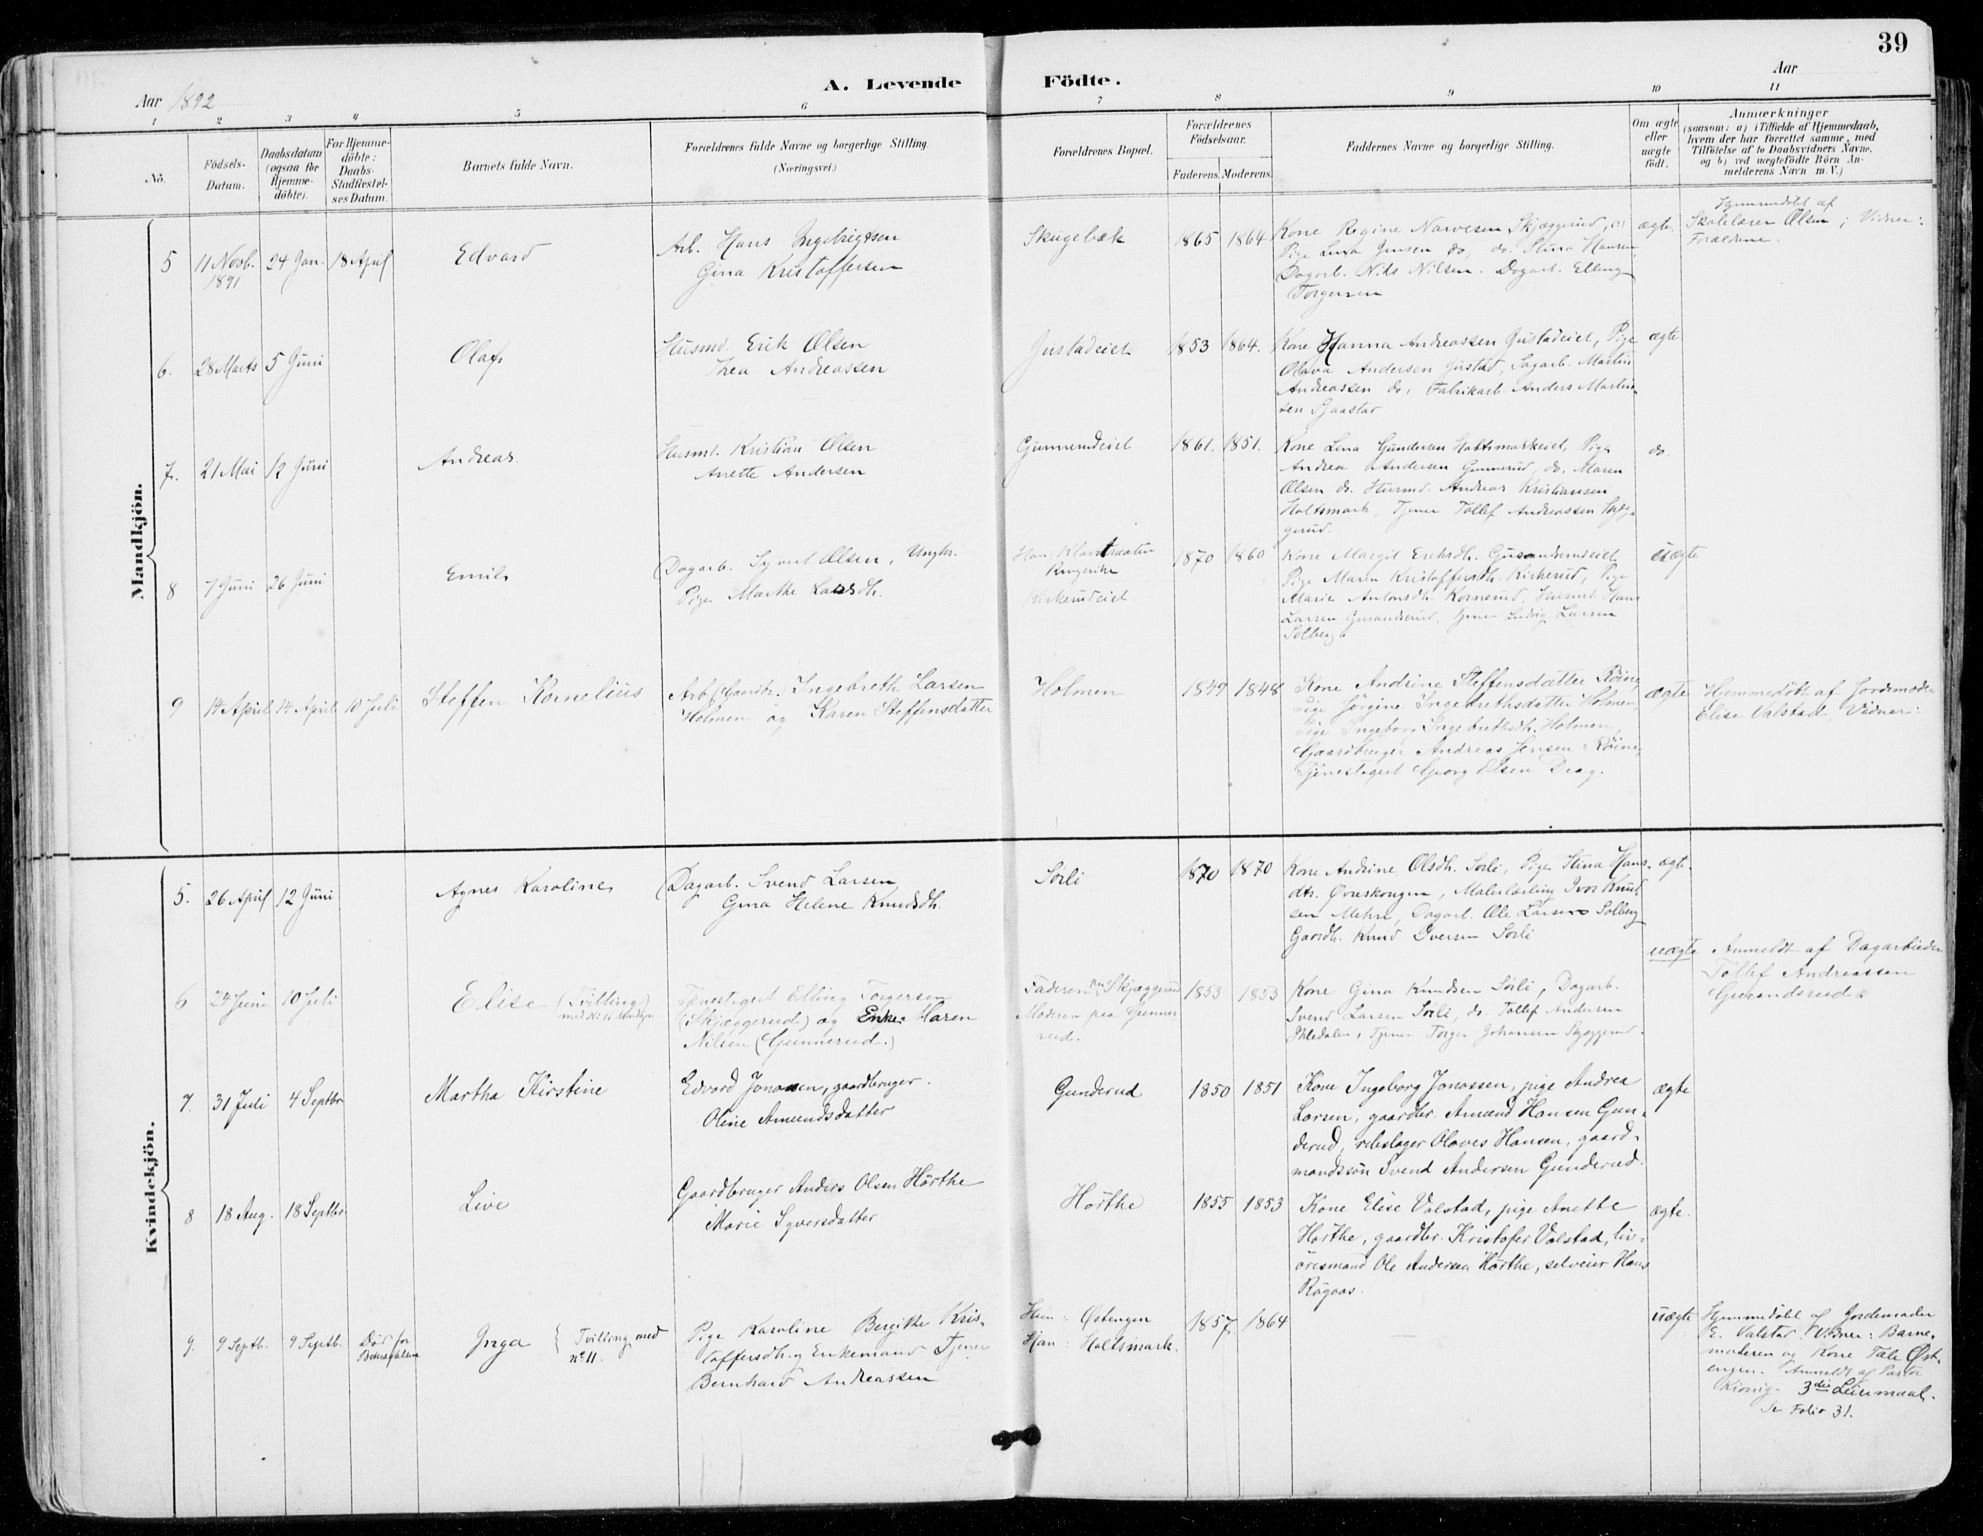 39
A. Levende Födte.
Aar 1892
Aar
1 2 3 4 5 6 7 8 9 10 11
Nô.
Födsels-Datum.
Daabsdatum (ogsaa for Hjemme-döbte).
For Hjemme-döbte: Daabs-Stadfæstel-ses Datum.
Barnets fulde Navn.
Forældrenes fulde Navne og borgerlige Stilling.
(Næringsvei.)
Forældrenes Bopæl.
Forældrenes Födselsaar.
Faderens. Moderens.
Faddernes Navne og borgerlige Stilling.
Om ægte eller uægte födt.
Anmærkninger
(saasom: a) i Tilfælde af Hjemmedaab,
hvem der har forrettet samme, med
Tilföielse af to Daabsvidners Navne,
og b) ved uægtefödte Börn An-
melderens Navn m. V.)
Mandkjön.
5 11 Novb. 1891 24 Jan. 18 April
Edvard
Arb. Hans Ingebrigtsen
Gina Kristoffersen
Skugebæk
1865 1864
Kone Regine Narvesen Skjæggerud,
Pige Lina Jensen do, do. Stina Hansen
Dagarb. Nils Nilsen. Dagarb. Elling
Torgersen
ægte.
Hjemmedöbt af
Skolelærer Olsen; Vidner:
Forældrene.
6. 28 Marts 5 Juni
Olaf
Husmd. Erik Olsen
Thea Andreassen
Gustadeiet
1853 1864.
Kone Hanna Andreassen Gustadeiet, Pige
Olava Andersen Gustad, Sagarb. Martin
Andreassen do, Fabrikarb. Anders Martin-
sen Sjaastad
ægte
7. 21 Mai 12 Juni
Andreas
Husmd. Kristian Olsen
Anette Andersen
Gunnerudeiet
1861. 1851.
Kone Lina Gundersen Holtsmarkeiet, Pige
Andrea Andersen Gunnerud, do. Maren
Olsen do. Husmd. Andreas Kristiansen
Holtsmark, Tjener Tollef Andreassen Skjæg-
gerud.
do.
8 7 Juni 26 Juni
Emil
Dagarb. Syvert Olsen, Ungkr.
Pige Marthe Larsdh.
Han: Ringerike
Kirkerudeiet.
1870 1860
Kone Margit Eriksdh.
Pige Maren Kristoffersdh. Kirkerud, Pige
Marie Antonsdh. Kornerud, Husmd. Hans
Larsen Gusandsrud, tjener Ludvig Larsen
Solberg
uægte
9 14 April 14 April 10 Juli
Steffen Kornelius
Arb. Ingebreth Larsen
Holmen og Karen Steffensdatter
Holmen
1849 1848
Kone Andrine Steffensdatter Röine,
Pige Jörgine Ingebrethsdatter Holmen,
Pige Ingeborg Ingebrethsdh. Holmen,
Gaardbruger Andreas Jensen Röine,
Tjenestegut Georg Olsen Drag.
ægte
Hjemmedöbt af Jordemoder
Elise Valstad, Vidner:
Kvindekjön.
5. 26 April 12 Juni
Agnes Karoline
Dagarb. Svend Larsen
Gina Helene Knudsdh.
Sörli
1870 1870
Kone Andrine Olsdh. Sörli, Pige Stina Hans-
dtr. Ovnskougen, Malerlærling Iver Knud-
sen Mehre, Dagarb. Ole Larsen Solberg
Gaardb. Knud Iversen Sörli
ægte.
6 24 Juni 10 Juli
Elise (Tvilling
Tjenestegut Elling Torgersen
(Skjæggerud) og Enke: Maren
Nilsen (Gunnerud.)
Faderen paa Skjæggerud
Moderen paa Gunne-
rud.
1853 1853
Kone Gina Knudsen Sörli, Dagarb.
Svend Larsen Sörli, do. Tollef Andersen
Ihledalen, Tjener Torger Johansen Skjæggerud.
uægte
Anmeldt af Dagarbeider
Tollef Andreassen
Gusandsrud.
7. 31 Juli 4 Septbr
Martha Kirstine
Edvard Jonassen, gaardbruger.
Oline Amundsdatter
Gunderud
1850 1851
Kone Ingeborg Jonassen, pige Andrea
Larsen, gaardbr. Amund Hansen Gun-
derud, rebslager Olaves Hansen, gaard-
mandssön Svend Andersen Gunderud.
ægte
8 18 Aug. 18 Septbr.
Live
Gaardbruger Anders Olsen Hörthe
Marie Syversdatter
Hörthe
1855 1853
Kone Elise Valstad, pige Anette
Hörthe, gaardbr. Kristofer Valstad, liv-
öresmand Ole Andersen Hörthe, selveier Hans
Rögaas.
ægte.
9. 9 Septb. 9 Septb. Död för
Inga { Tvilling med
nº 11.
Pige Karoline Bergitte Kris-
toffersdh. og Enkemand Tjener
Bernhard Andreassen
Hun: Östengen
Han: Holtsmark.
1857. 1864
uægte
Hjemmedöbt af Jordemoder
E. Valstad. Vidner: Barne-
moderen og Kone Tale Öst-
engen. Anmeldt af Pastor
3die Leiermaal.
Se Folio 31.